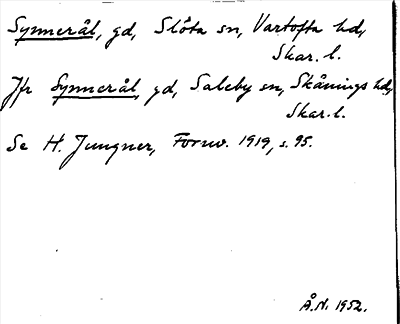 Synnerål, gd, Slöta sn, Vartofta hd,
Skar. l.
Jfr Synnerål, gd, Saleby sn, Skånings hd,
Skar. l.
Se H. Jungner, Fornv. 1919, s. 95.
Å.N. 1952.